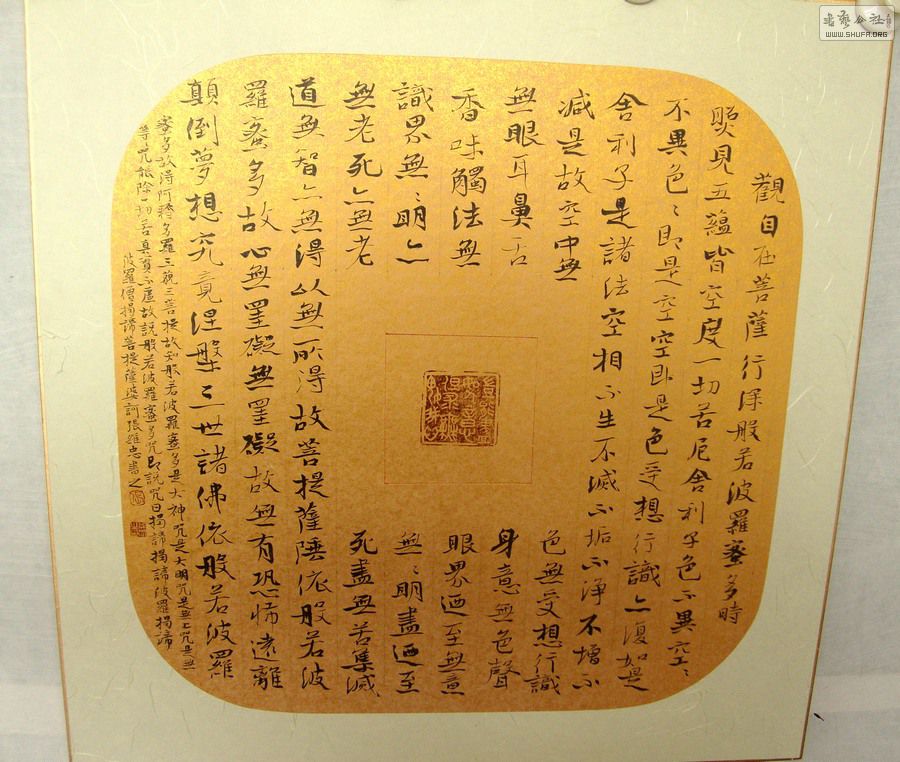 觀自在菩薩行深般若波羅蜜多時
照見五蘊皆空度一切苦厄舍利子色不異空〻
不異色〻即是空空即是色受想行識亦復如是
舍利子是諸法空相不生不滅不垢不淨不增不
減是故空中無 色無受想行識
無眼耳鼻舌 身意無色聲
香味觸法無 眼界迺至無意
識界無〻明亦 無〻明盡迺至
無老死亦無老 死盡無苦集滅
道無智亦無得以無所得故菩提薩埵依般若波
羅蜜多故心無罣礙無罣礙故無有恐怖遠離
顛倒夢想究竟涅槃三世諸佛依般若波羅
蜜多故得阿耨多羅三藐三菩提故知般若波羅蜜多是大神咒是大明咒是無上咒是無
等咒能除一切苦真實不虛故說般若波羅蜜多咒即說咒曰揭諦揭諦波羅揭諦
波羅僧揭諦菩提薩婆訶張維忠書之
書藝公社
WWW.SHUFA.ORG